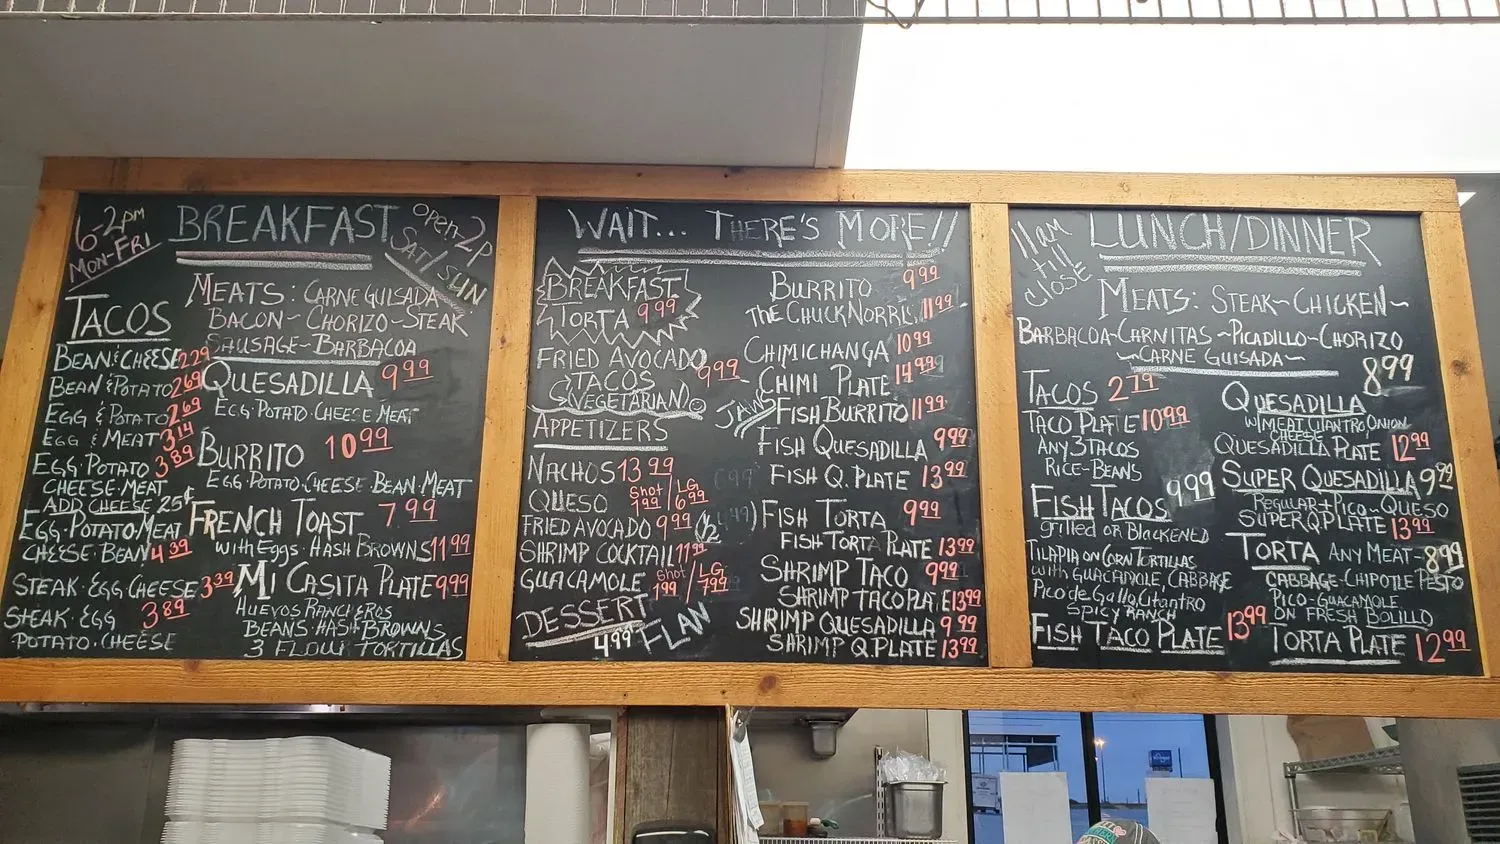 6-2pm
Mon-Fri
BREAKFAST
Open-2P
Sat/Sun
TACOS
BEAN & CHEESE 2.29
BEAN & POTATO 2.69
EGG & POTATO 2.69
EGG & MEAT 3.14
EGG·POTATO 3.89
CHEESE·MEAT
ADD CHEESE 25¢
EGG·POTATO·MEAT
CHEESE·BEAN 4.39
STEAK·EGG CHEESE 3.39
STEAK·EGG 3.89
POTATO·CHEESE
MEATS: CARNE GUISADA
BACON~CHORIZO~STEAK
SAUSAGE~BARBACOA
QUESADILLA 9.99
EGG·POTATO·CHEESE MEAT
BURRITO 10.99
EGG·POTATO·CHEESE BEAN·MEAT
FRENCH TOAST 7.99
with Eggs·HASH BROWNS 11.99
MI CASITA PLATE 9.99
HUEVOS RANCHEROS
BEANS·HASH BROWNS
3 FLOUR TORTILLAS
WAIT... THERE'S MORE!!
BREAKFAST
TORTA 9.99
FRIED AVOCADO 9.99
TACOS
VEGETARIAN
APPETIZERS
NACHOS 13.99
QUESO Shot 1.99 / LG 6.99
FRIED AVOCADO 9.99
SHRIMP COCKTAIL 11.99
GUACAMOLE Shot 1.99 / LG 7.99
DESSERT
4.99 FLAN
BURRITO 9.99
THE CHUCK NORRIS 11.99
CHIMICHANGA 10.99
CHIMI PLATE 14.99
FISH BURRITO 11.99
FISH QUESADILLA 9.99
FISH Q. PLATE 13.99
FISH TORTA 9.99
FISH TORTA PLATE 13.99
SHRIMP TACO 9.99
SHRIMP TACO PLATE 13.99
SHRIMP QUESADILLA 9.99
SHRIMP Q.PLATE 13.99
11am
till
close
LUNCH/DINNER
MEATS: STEAK~CHICKEN~
BARBACOA~CARNITAS~PICADILLO~CHORIZO
~CARNE GUISADA~
TACOS 2.79
TACO PLATE 10.99
ANY 3 TACOS
RICE-BEANS
FISH TACOS 9.99
grilled or Blackened
TILAPIA ON CORN TORTILLAS
with GUACAMOLE, CABBAGE
Pico de Gallo, Cilantro
SPICY RANCH
FISH TACO PLATE 13.99
QUESADILLA 8.99
W/MEAT CILANTRO, ONION
CHEESE
QUESADILLA PLATE 12.99
SUPER QUESADILLA 9.99
REGULAR + PICO~QUESO
SUPER Q PLATE 13.99
TORTA ANY MEAT-8.99
CABBAGE·CHIPOTLE PESTO
PICO·GUACAMOLE,
ON FRESH BOLILLO
TORTA PLATE 12.99